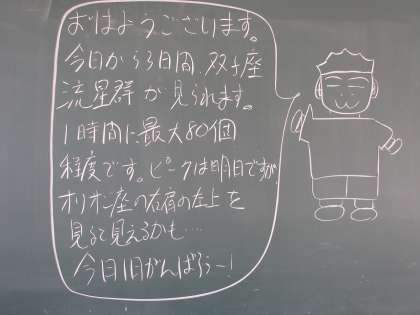 おはようございます。
今日から3日間、双子座
流星群が見られます。
1時間に最大80個
程度です。ピークは明日ですが、
オリオン座の右肩の左上を
見ると見えるかも…
今日1日がんばろうー!